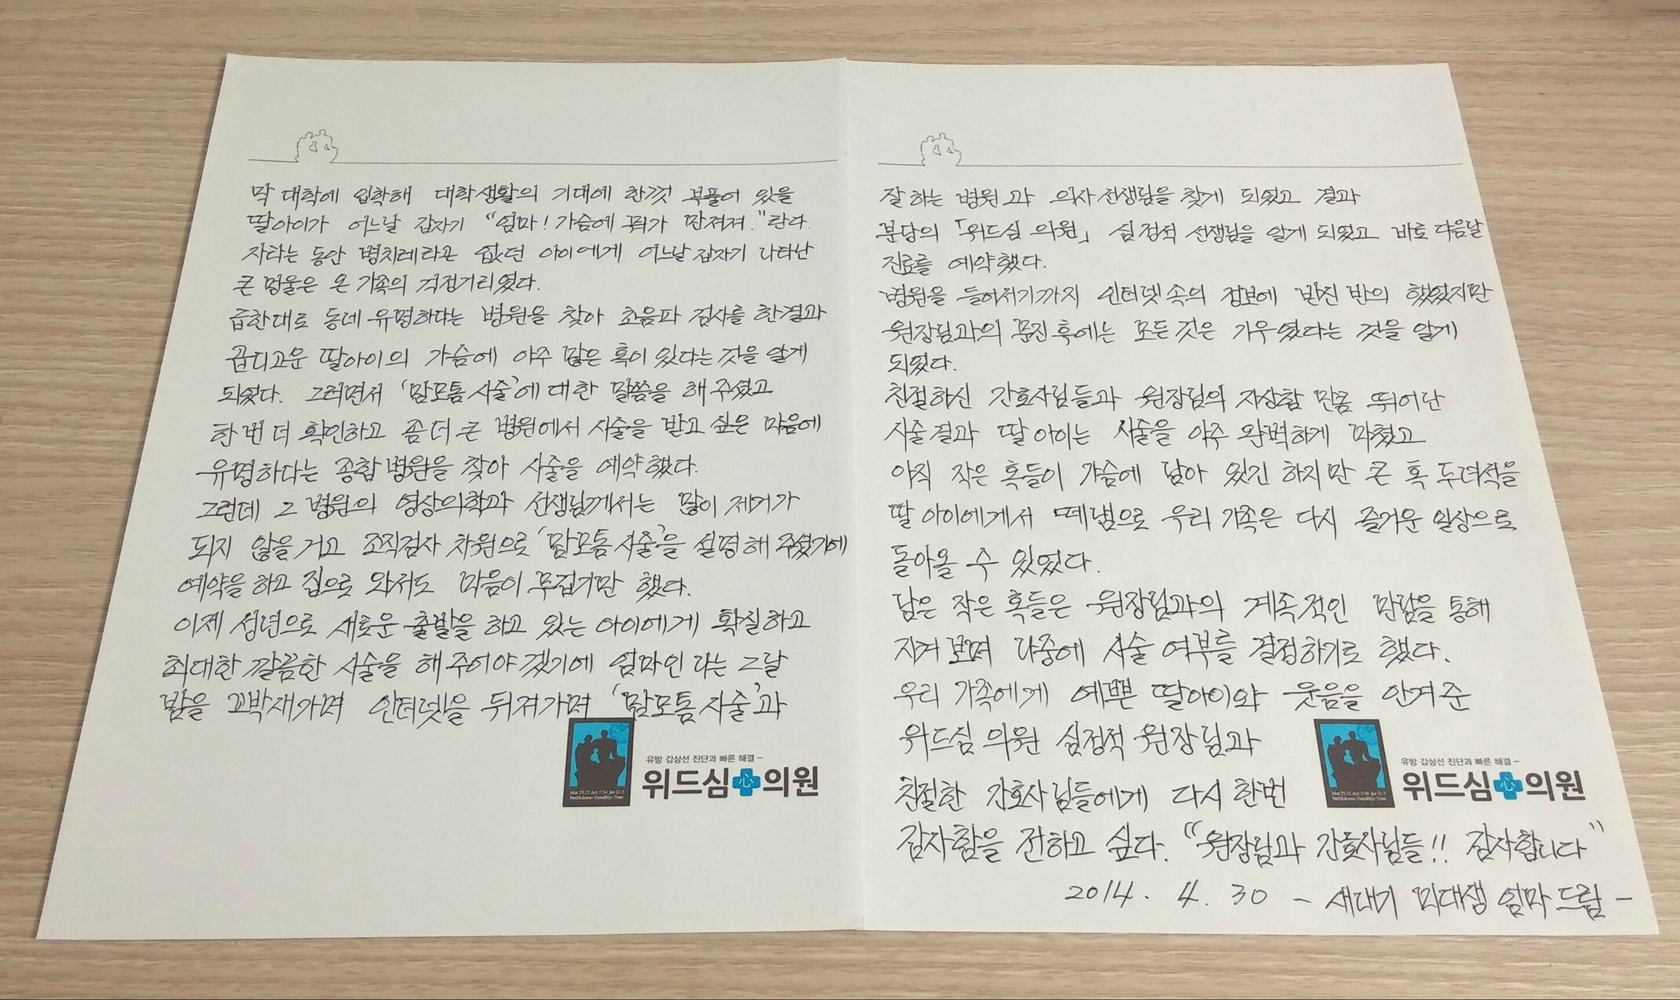 막 대학에 입학해 대학생활의 기대에 한껏 부풀어 있을
딸아이가 어느날 갑자기 “엄마! 가슴에 뭐가 만져져.”란다.
자라는 동안 병치레라곤 없던 아이에게 어느날 갑자기 나타난
큰 멍울은 온 가족의 걱정거리였다.
급한대로 동네 유명하다는 병원을 찾아 초음파 검사를 한결과
곱디고운 딸아이의 가슴에 아주 많은 혹이 있다는 것을 알게
되었다. 그러면서 ‘맘모톰 시술’에 대한 말씀을 해 주셨고
한번 더 확인하고 좀 더 큰 병원에서 시술을 받고 싶은 마음에
유명하다는 종합병원을 찾아 시술을 예약했다.
그런데 그 병원의 영상의학과 선생님께서는 많이 제거가
되지 않을 거고 조직검사 차원으로 ‘맘모톰 시술’을 설명해 주셨기에
예약을 하고 집으로 와서도 마음이 무겁기만 했다.
이제 성년으로 새로운 출발을 하고 있는 아이에게 확실하고
최대한 깔끔한 시술을 해 주어야겠기에 엄마인 나는 그날
밤을 꼬박새가며 인터넷을 뒤져가며 ‘맘모톰 시술’과
유방 갑상선 진단과 빠른 해결 –
위드심 心 의원
잘 하는 병원과 의사선생님을 찾게 되었고 결과
분당의 「위드심 의원」 심정석 선생님을 알게 되었고 바로 다음날
진료를 예약했다.
병원을 들어서기까지 인터넷 속의 정보에 반신 반의 했었지만
원장님과의 문진 후에는 모든 것은 기우였다는 것을 알게
되었다.
친절하신 간호사님들과 원장님의 자상함 만큼 뛰어난
시술결과 딸아이는 시술을 아주 완벽하게 마쳤고
아직 작은 혹들이 가슴에 남아 있긴 하지만 큰 혹 두녀석을
딸아이에게서 떼냄으로 우리 가족은 다시 즐거운 일상으로
돌아올 수 있었다.
남은 작은 혹들은 원장님과의 계속적인 만남을 통해
지켜보며 나중에 시술 여부를 결정하기로 했다.
우리 가족에게 예쁜 딸아이와 웃음을 안겨준
위드심 의원 심정석 원장님과
친절한 간호사님들에게 다시 한번
감사함을 전하고 싶다. “원장님과 간호사님들!! 감사합니다”
2014. 4. 30 – 새내기 미대생 엄마 드림 –
유방 갑상선 진단과 빠른 해결 –
위드심 心 의원